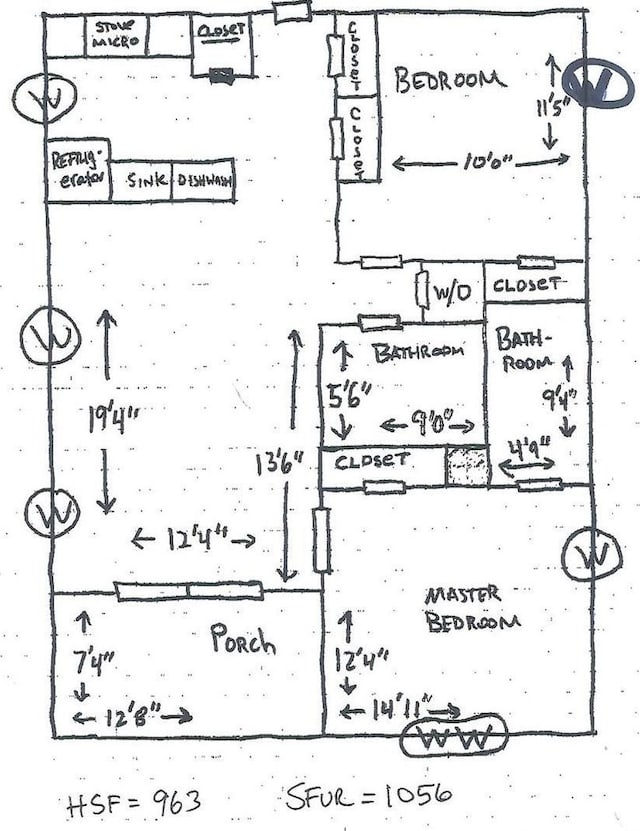 STOVE
MICRO
CLOSET
CLOSET
BEDROOM
11'5"
W
W
CLOSET
REFRIG-
erator
SINK
DISHWASH
10'0"
W/D
CLOSET
W
BATHROOM
BATH-
ROOM
5'6"
9'4"
19'4"
9'0"
13'6"
CLOSET
4'9"
W
12'4"
W
MASTER
BEDROOM
PORCH
7'4"
12'4"
12'8"
14'11"
W W
HSF = 963
SFUR = 1056